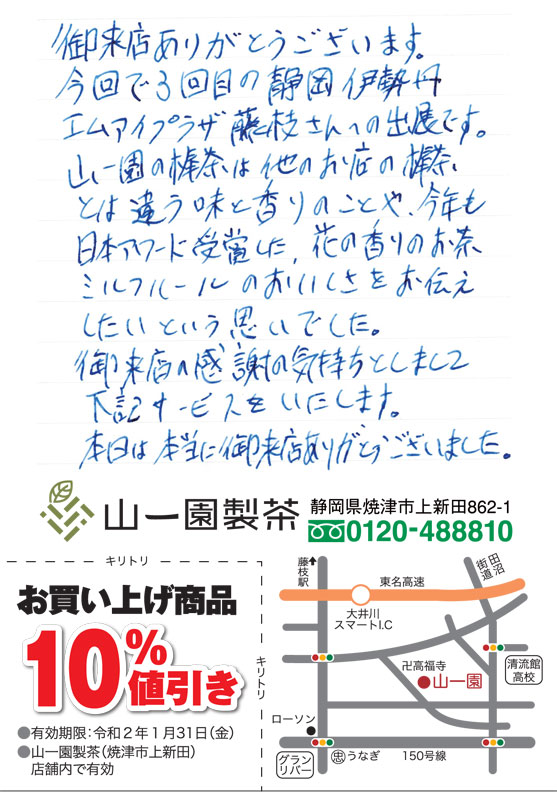 御来店ありがとうございます。
今回で3回目の静岡伊勢丹
エムアイプラザ藤枝さんへの出展です。
山一園の棒茶は他のお店の棒茶
とは違う味と香りのことや、今年も
日本アワード受賞した、花の香りのお茶
ミルフルールのおいしさをお伝え
したいという思いでした。
御来店の感謝の気持ちとしまして
下記サービスをいたします。
本日は本当に御来店ありがとうございました。
山一園製茶
静岡県焼津市上新田862-1
0120-488810
キリトリ
お買い上げ商品
10%
値引き
●有効期限:令和2年1月31日(金)
●山一園製茶(焼津市上新田)
店舗内で有効
キリトリ
藤枝駅
東名高速
田沼街道
大井川
スマートI.C
卍高福寺
山一園
清流館
高校
ローソン
グラン
リバー
忠うなぎ
150号線